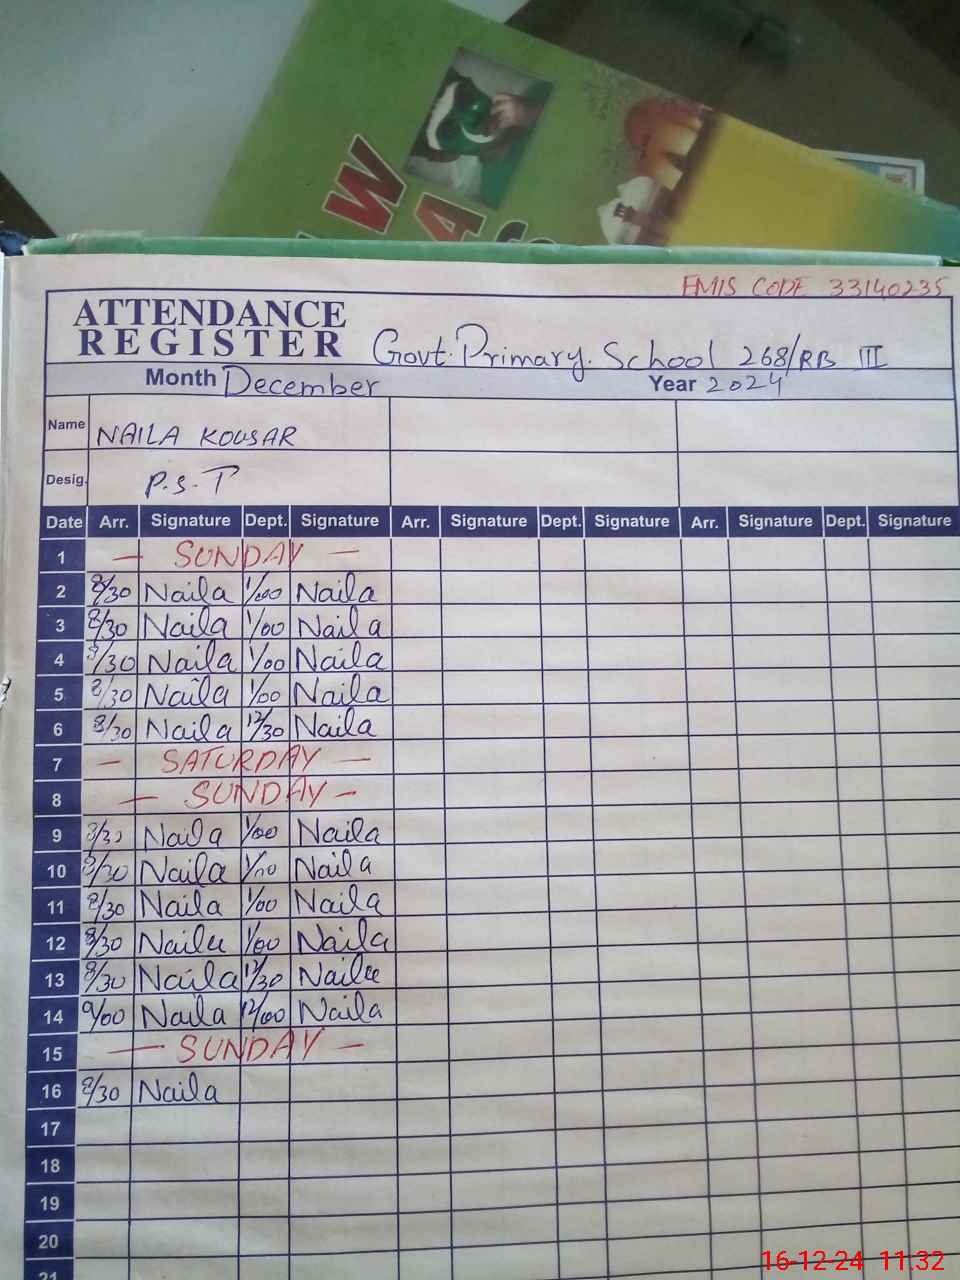 W
A
EMIS CODE 33140235
ATTENDANCE
REGISTER Govt. Primary. School 268/RB III
Month December Year 2024
Name NAILA KOUSAR
Desig. P.S.T
Date Arr. Signature Dept. Signature Arr. Signature Dept. Signature Arr. Signature Dept. Signature
1 — SUNDAY —
2 8/30 Naila 1/00 Naila
3 8/30 Naila 1/00 Naila
4 8/30 Naila 1/00 Naila
5 8/30 Naila 1/00 Naila
6 8/30 Naila 12/30 Naila
7 — SATURDAY —
8 — SUNDAY —
9 8/30 Naila 1/00 Naila
10 8/30 Naila 1/00 Naila
11 8/30 Naila 1/00 Naila
12 8/30 Naila 1/00 Naila
13 8/30 Naila 12/30 Naila
14 9/00 Naila 12/00 Naila
15 — SUNDAY —
16 8/30 Naila
17
18
19
20
21
16-12-24 11:32